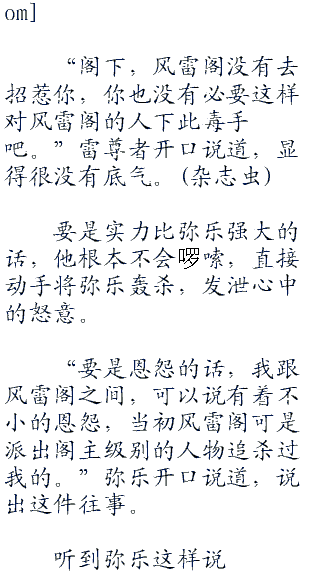 om]
“阁下，风雷阁没有去
招惹你，你也没有必要这样
对风雷阁的人下此毒手
吧。”雷尊者开口说道，显
得很没有底气。(杂志虫)
要是实力比弥乐强大的
话，他根本不会啰嗦，直接
动手将弥乐轰杀，发泄心中
的怒意。
“要是恩怨的话，我跟
风雷阁之间，可以说有着不
小的恩怨，当初风雷阁可是
派出阁主级别的人物追杀过
我的。”弥乐开口说道，说
出这件往事。
听到弥乐这样说